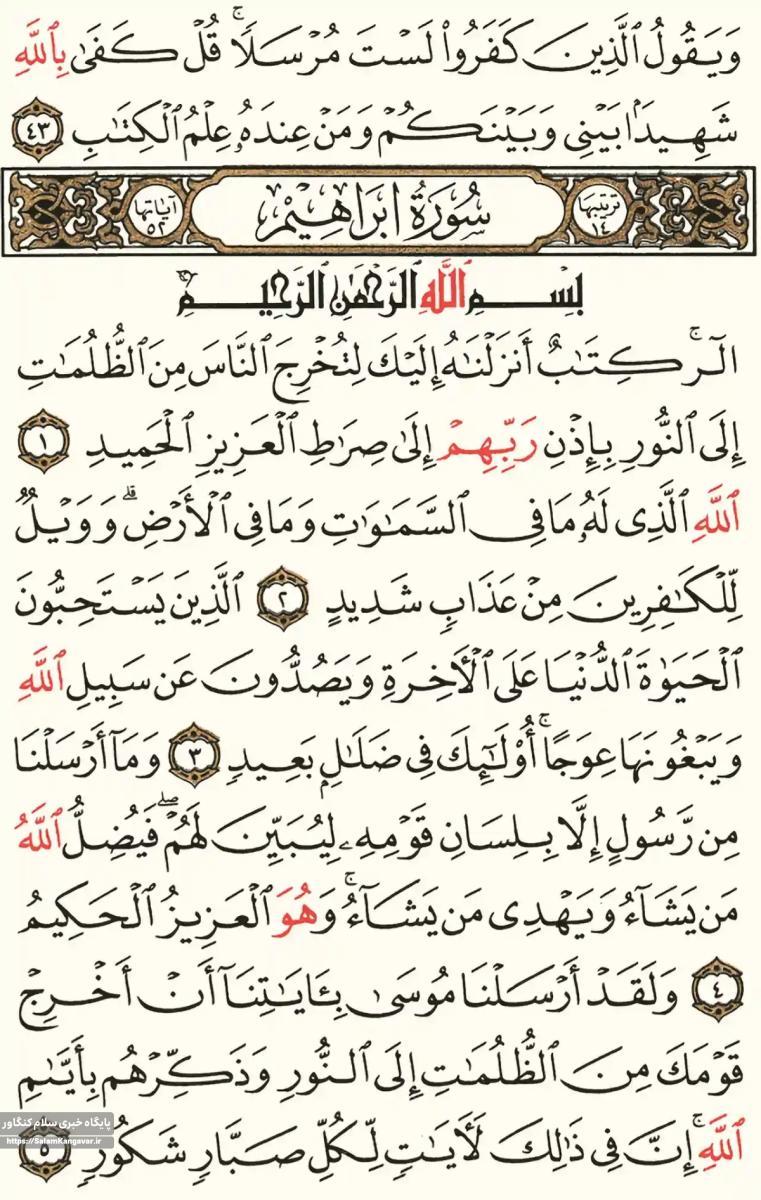 وَيَقُولُ ٱلَّذِينَ كَفَرُوا۟ لَسْتَ مُرْسَلًا ۚ قُلْ كَفَىٰ بِٱللَّهِ
شَهِيدًۢا بَيْنِى وَبَيْنَكُمْ وَمَنْ عِندَهُۥ عِلْمُ ٱلْكِتَٰبِ ٤٣
ترتيبها ١٤ سُورَةُ إبْرَاهِيْمَ آياتها ٥٢
بِسْمِ ٱللَّهِ ٱلرَّحْمَٰنِ ٱلرَّحِيمِ
الٓر ۚ كِتَٰبٌ أَنزَلْنَٰهُ إِلَيْكَ لِتُخْرِجَ ٱلنَّاسَ مِنَ ٱلظُّلُمَٰتِ
إِلَى ٱلنُّورِ بِإِذْنِ رَبِّهِمْ إِلَىٰ صِرَٰطِ ٱلْعَزِيزِ ٱلْحَمِيدِ ١
ٱللَّهِ ٱلَّذِى لَهُۥ مَا فِى ٱلسَّمَٰوَٰتِ وَمَا فِى ٱلْأَرْضِ ۗ وَوَيْلٌ
لِّلْكَٰفِرِينَ مِنْ عَذَابٍ شَدِيدٍ ٢ ٱلَّذِينَ يَسْتَحِبُّونَ
ٱلْحَيَوٰةَ ٱلدُّنْيَا عَلَى ٱلْءَاخِرَةِ وَيَصُدُّونَ عَن سَبِيلِ ٱللَّهِ
وَيَبْغُونَهَا عِوَجًا ۚ أُو۟لَٰٓئِكَ فِى ضَلَٰلٍۭ بَعِيدٍ ٣ وَمَآ أَرْسَلْنَا
مِن رَّسُولٍ إِلَّا بِلِسَانِ قَوْمِهِۦ لِيُبَيِّنَ لَهُمْ ۖ فَيُضِلُّ ٱللَّهُ
مَن يَشَآءُ وَيَهْدِى مَن يَشَآءُ ۚ وَهُوَ ٱلْعَزِيزُ ٱلْحَكِيمُ
٤ وَلَقَدْ أَرْسَلْنَا مُوسَىٰ بِـَٔايَٰتِنَآ أَنْ أَخْرِجْ
قَوْمَكَ مِنَ ٱلظُّلُمَٰتِ إِلَى ٱلنُّورِ وَذَكِّرْهُم بِأَيَّىٰمِ
ٱللَّهِ ۚ إِنَّ فِى ذَٰلِكَ لَءَايَٰتٍ لِّكُلِّ صَبَّارٍ شَكُورٍ ٥
پایگاه خبری سلام کنگاور
https://SalamKangavar.ir